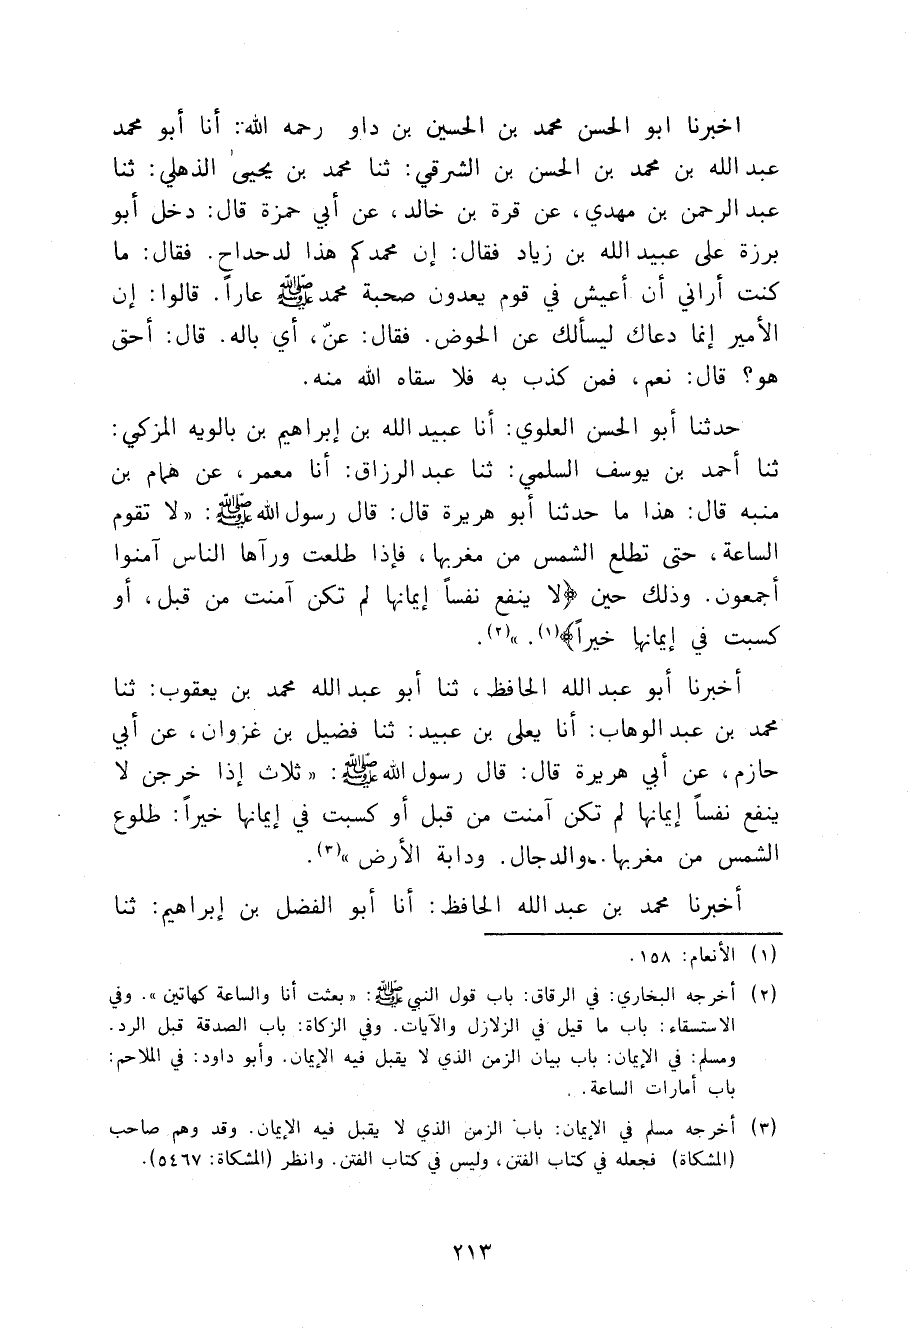 اخبرنا ابو الحسن محمد بن الحسين بن داو رحمه الله: أنا أبو محمد
عبد الله بن محمد بن الحسن بن الشرقي: ثنا محمد بن يحيى الذهلي: ثنا
عبد الرحمن بن مهدي، عن قرة بن خالد، عن أبي حمزة قال: دخل أبو
برزة على عبيد الله بن زياد فقال: إن محمدكم هذا لدحداح. فقال: ما
كنت أراني أن أعيش في قوم يعدون صحبة محمد ﷺ عاراً. قالوا: إن
الأمير إنما دعاك ليسألك عن الحوض. فقال: عنّ، أي باله. قال: أحق
هو؟ قال: نعم، فمن كذب به فلا سقاه الله منه.
حدثنا أبو الحسن العلوي: أنا عبيد الله بن إبراهيم بن بالويه المزكي:
ثنا أحمد بن يوسف السلمي: ثنا عبد الرزاق: أنا معمر، عن همام بن
منبه قال: هذا ما حدثنا أبو هريرة قال: قال رسول الله ﷺ: «لا تقوم
الساعة، حتى تطلع الشمس من مغربها، فإذا طلعت ورآها الناس آمنوا
أجمعون. وذلك حين ﴿لا ينفع نفساً إيمانها لم تكن آمنت من قبل، أو
كسبت في إيمانها خيراً﴾(١). »(٢).
أخبرنا أبو عبد الله الحافظ، ثنا أبو عبد الله محمد بن يعقوب: ثنا
محمد بن عبد الوهاب: أنا يعلى بن عبيد: ثنا فضيل بن غزوان، عن أبي
حازم، عن أبي هريرة قال: قال رسول الله ﷺ: «ثلاث إذا خرجن لا
ينفع نفساً إيمانها لم تكن آمنت من قبل أو كسبت في إيمانها خيراً: طلوع
الشمس من مغربها. والدجال. ودابة الأرض »(٣).
أخبرنا محمد بن عبد الله الحافظ: أنا أبو الفضل بن إبراهيم: ثنا
(١) الأنعام: ١٥٨.
(٢) أخرجه البخاري: في الرقاق: باب قول النبي ﷺ: «بعثت أنا والساعة كهاتين». وفي
الاستسقاء: باب ما قيل في الزلازل والآيات. وفي الزكاة: باب الصدقة قبل الرد.
ومسلم: في الإيمان: باب بيان الزمن الذي لا يقبل فيه الإيمان. وأبو داود: في الملاحم:
باب أمارات الساعة.
(٣) أخرجه مسلم في الإيمان: باب الزمن الذي لا يقبل فيه الإيمان. وقد وهم صاحب
(المشكاة) فجعله في كتاب الفتن، وليس في كتاب الفتن. وانظر (المشكاة: ٥٤٦٧).
٢١٣